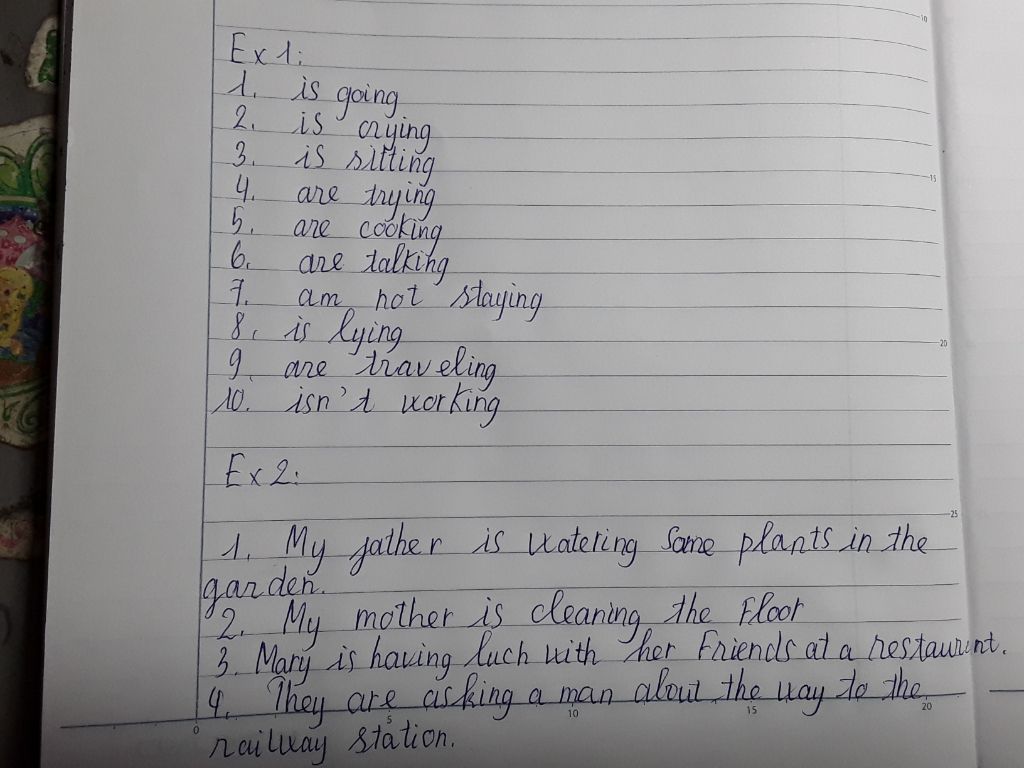 Ex 1:
1. is going
2. is crying
3. is sitting
4. are trying
5. are cooking
6. are talking
7. am not staying
8. is lying
9. are traveling
10. isn't working
Ex 2:
1. My father is watering some plants in the
garden.
2. My mother is cleaning the Floor
3. Mary is having luch with her Friends at a restaurint.
4. They are asking a man about the way to the
railway station.
10
15
20
25
0
5
10
15
20